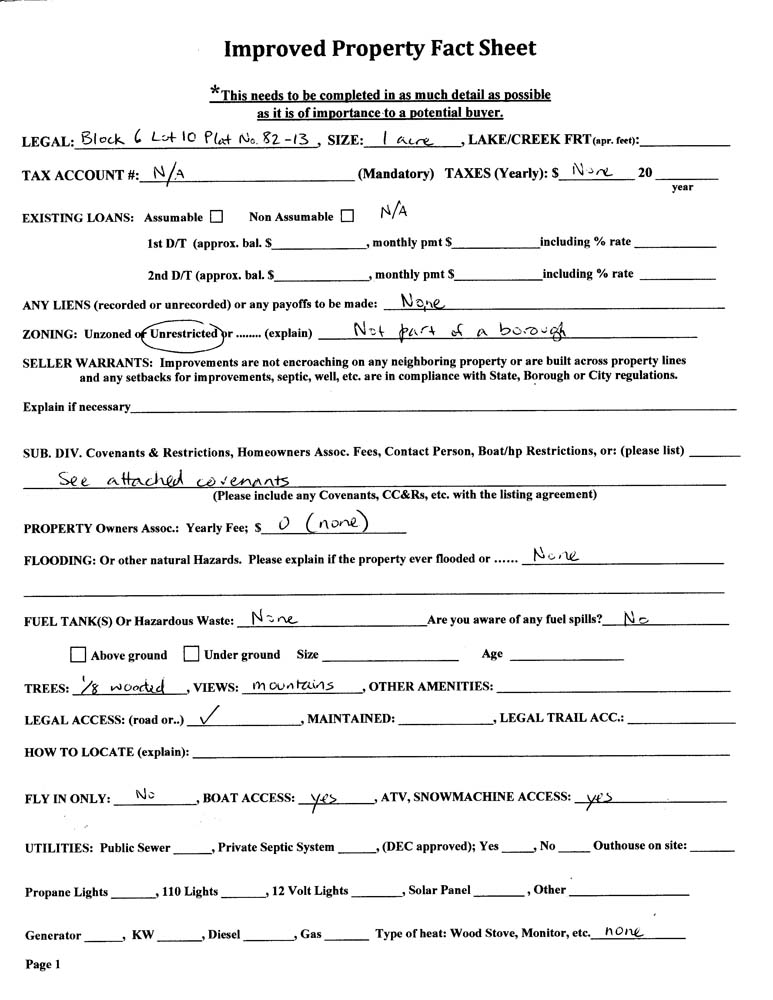 Improved Property Fact Sheet
*This needs to be completed in as much detail as possible
as it is of importance to a potential buyer.
LEGAL: Block 6 Lot 10 Plat No. 82-13, SIZE: 1 acre, LAKE/CREEK FRT(apr. feet):
TAX ACCOUNT #: N/A (Mandatory) TAXES (Yearly): $ None 20
year
EXISTING LOANS: Assumable ☐ Non Assumable ☐ N/A
1st D/T (approx. bal. $, monthly pmt $ including % rate
2nd D/T (approx. bal. $, monthly pmt $ including % rate
ANY LIENS (recorded or unrecorded) or any payoffs to be made: None
ZONING: Unzoned or Unrestricted or ........ (explain) Not part of a borough
SELLER WARRANTS: Improvements are not encroaching on any neighboring property or are built across property lines
and any setbacks for improvements, septic, well, etc. are in compliance with State, Borough or City regulations.
Explain if necessary
SUB. DIV. Covenants & Restrictions, Homeowners Assoc. Fees, Contact Person, Boat/hp Restrictions, or: (please list)
See attached covenants
(Please include any Covenants, CC&Rs, etc. with the listing agreement)
PROPERTY Owners Assoc.: Yearly Fee; $ 0 (none)
FLOODING: Or other natural Hazards. Please explain if the property ever flooded or ...... None
FUEL TANK(S) Or Hazardous Waste: None Are you aware of any fuel spills? No
☐ Above ground ☐ Under ground Size Age
TREES: 1/8 wooded, VIEWS: mountains, OTHER AMENITIES:
LEGAL ACCESS: (road or..) ✓, MAINTAINED:, LEGAL TRAIL ACC.:
HOW TO LOCATE (explain):
FLY IN ONLY: No, BOAT ACCESS: yes, ATV, SNOWMACHINE ACCESS: yes
UTILITIES: Public Sewer, Private Septic System, (DEC approved); Yes, No Outhouse on site:
Propane Lights, 110 Lights, 12 Volt Lights, Solar Panel, Other
Generator, KW, Diesel, Gas Type of heat: Wood Stove, Monitor, etc. none
Page 1